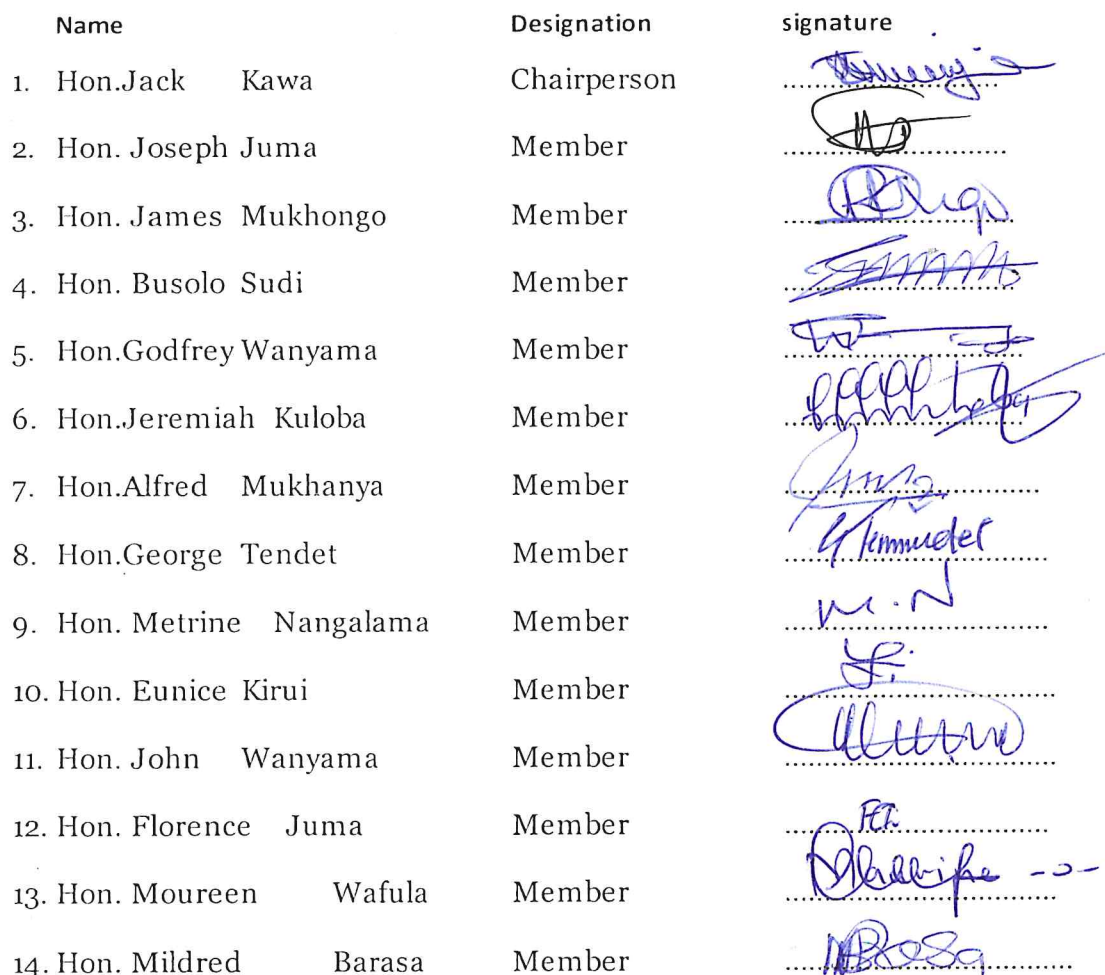 Name Designation signature
1. Hon.Jack Kawa Chairperson
2. Hon. Joseph Juma Member
3. Hon. James Mukhongo Member
4. Hon. Busolo Sudi Member
5. Hon.Godfrey Wanyama Member
6. Hon.Jeremiah Kuloba Member
7. Hon.Alfred Mukhanya Member
8. Hon.George Tendet Member
9. Hon. Metrine Nangalama Member M.N
10. Hon. Eunice Kirui Member
11. Hon. John Wanyama Member
12. Hon. Florence Juma Member
13. Hon. Moureen Wafula Member
14. Hon. Mildred Barasa Member